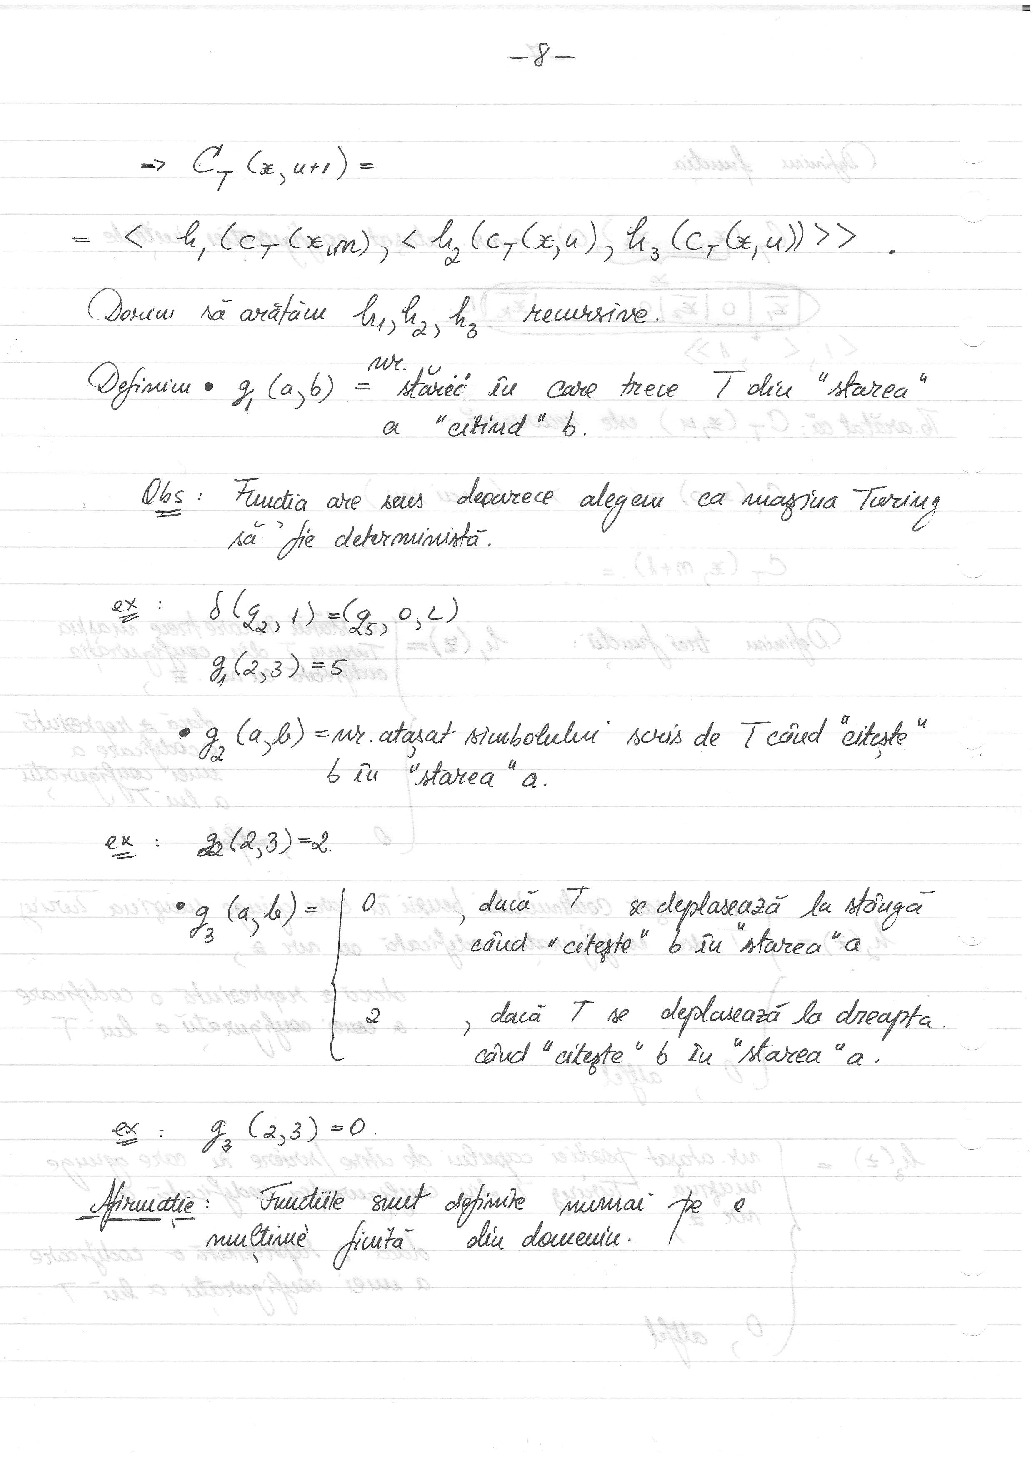 -8-
→ C_T (x, n+1) =
= < h_1 (C_T (x, n), < h_2 (C_T (x, n), h_3 (C_T (x, n)) >> .
Dorim să arătăm h_1, h_2, h_3 recursive.
nr.
Definim • g_1 (a, b) = stării în care trece T din "starea"
a "citind" b.
Obs : Funcția are sens deoarece alegem ca mașina Turing
să fie deterministă.
ex : δ(q_2, 1) = (q_5, 0, L)
g_1 (2, 3) = 5
• g_2 (a, b) = nr. atașat simbolului scris de T când "citește"
b în "starea" a.
ex : g_2 (2, 3) = 2
• g_3 (a, b) = { 0 , dacă T se deplasează la stângă
când "citește" b în "starea" a
2 , dacă T se deplasează la dreapta.
când "citește" b în "starea" a.
ex : g_3 (2, 3) = 0.
Afirmație : Funcțiile sunt definite numai pe o
mulțime finită din domeniu.